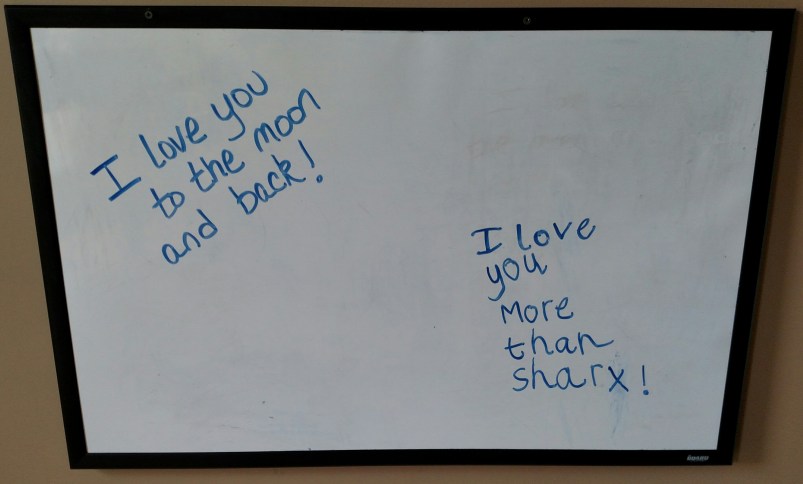 I love you
to the moon
and back!
I love
you
More
than
sharx!